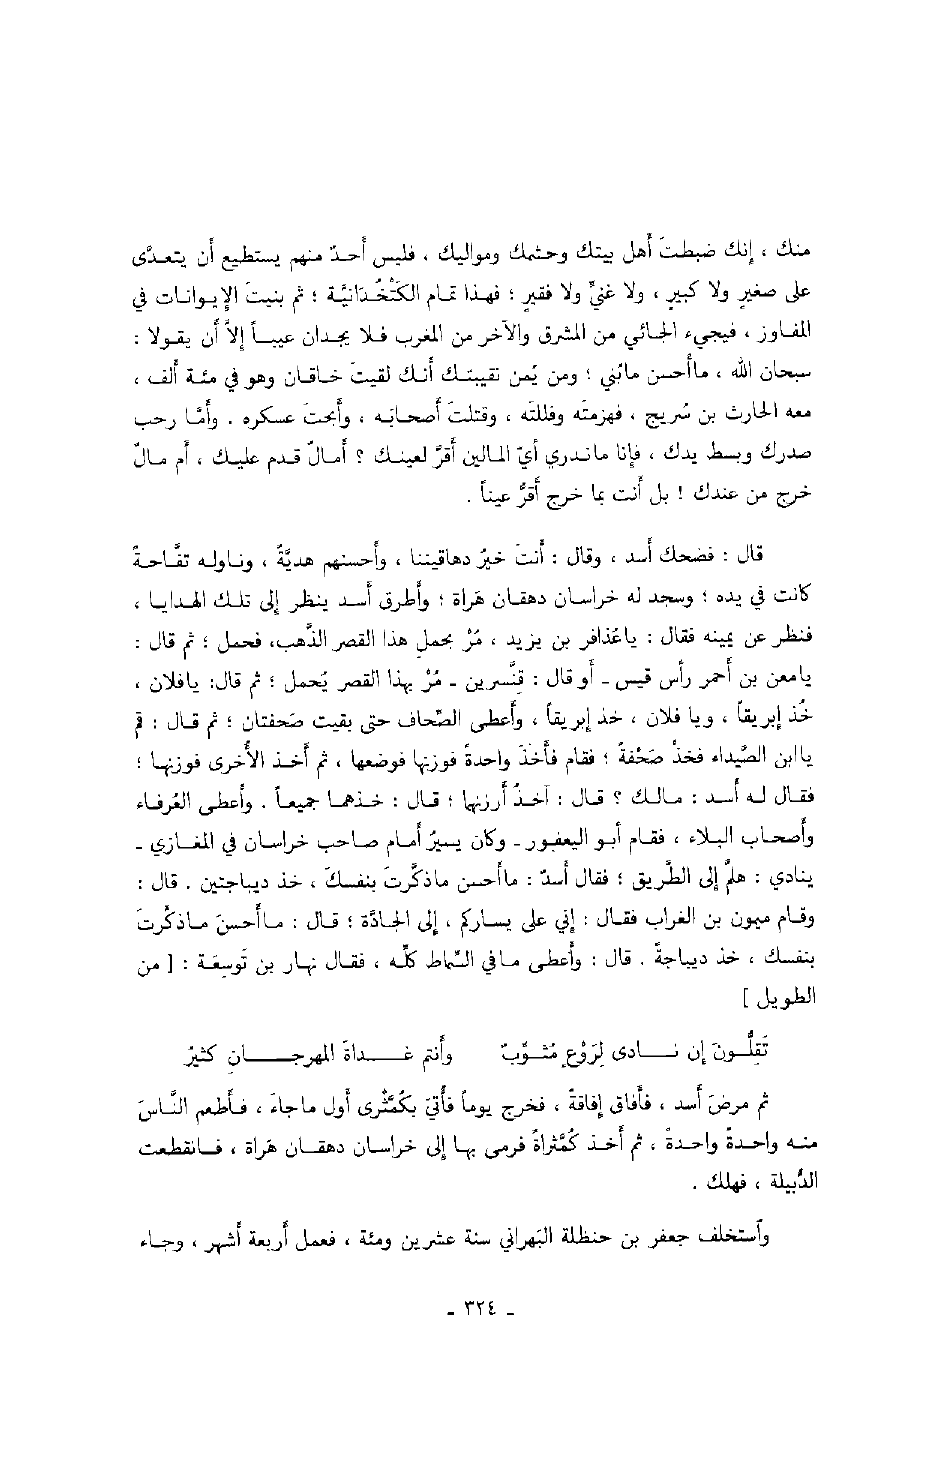 منك ، إنك ضبطتَ أهل بيتك وحشمك ومواليك ، فليس أحدٌ منهم يستطيع أن يتعدَّى
على صغيرٍ ولا كبيرٍ ، ولا غنيٍّ ولا فقيرٍ ؛ فهذا تمام الكَتْخُدَانيَّة ؛ ثم بنيتَ الإيوانات في
المفاوز ، فيجيء الجائي من المشرق والآخر من المغرب فلا يجدان عيباً إلاَّ أن يقولا :
سبحان الله ، ماأحسن مابُني ؛ ومن يُمن نقيبتك أنك لقيتَ خاقان وهو في مئة ألف ،
معه الحارث بن سُريج ، فهزمتَه وفللتَه ، وقتلتَ أصحابَه ، وأبحتَ عسكره . وأمَّا رحب
صدرك وبسط يدك ، فإنا ماندري أيّ المالين أقرَّ لعينك ؟ أمالٌ قدم عليك ، أم مالٌ
خرج من عندك ! بل أنت بما خرج أقرُّ عيناً .
قال : فضحك أسد ، وقال : أنتَ خيرُ دهاقيننا ، وأحسنهم هديَّةً ، وناوله تفَّاحةً
كانت في يده ؛ وسجد له خراسان دهقان هَراة ؛ وأطرق أسد ينظر إلى تلك الهدايا ،
فنظر عن يمينه فقال : ياعُذافر بن يزيد ، مُرْ بحمل هذا القصر الذَّهب، فحمل ؛ ثم قال :
يامعن بن أحمر رأس قيس ـ أو قال : قنَّسرين ـ مُرْ بهذا القصر يُحمل ؛ ثم قال: يافلان ،
خُذ إبريقاً ، ويا فلان ، خذ إبريقاً ، وأعطى الصِّحاف حتى بقيت صَحفتان ؛ ثم قال : قم
ياابن الصَّيداء فخذْ صَحْفةً ؛ فقام فأخذَ واحدةً فوزنها فوضعها ، ثم أخذ الأُخرى فوزنها ؛
فقال له أسد : مالك ؟ قال : آخذُ أرزنها ؛ قال : خذهما جميعاً . وأعطى العُرفاء
وأصحاب البلاء ، فقام أبو اليعفور ـ وكان يسيرُ أمام صاحب خراسان في المغازي ـ
ينادي : هلمَّ إلى الطَّريق ؛ فقال أسدٌ : ماأحسن ماذكَّرتَ بنفسكَ ، خذ ديباجتين . قال :
وقام ميمون بن الغراب فقال : إني على يساركم ، إلى الجادَّة ؛ قال : ماأحسنَ ماذكَّرتَ
بنفسك ، خذ ديباجةً . قال : وأعطى مافي السِّماط كلِّه ، فقال نهار بن تَوسِعَة : [ من
الطويل ]
تَقِلُّونَ إن نادى لِرَوْعٍ مُثَوِّبٌ    وأنتم غداةَ المهرجانِ كثيرُ
ثم مرضَ أسد ، فأفاق إفاقةً ، فخرج يوماً فأُتيَ بكُمَّثْرى أول ماجاءَ ، فأطعم النَّاسَ
منه واحدةً واحدةً ، ثم أخذ كُمَّثراةً فرمى بها إلى خراسان دهقان هَراة ، فانقطعت
الدُّبيلة ، فهلك .
وآستخلف جعفر بن حنظلة البَهراني سنة عشرين ومئة ، فعمل أربعة أشهر ، وجاء
ـ ٣٢٤ ـ